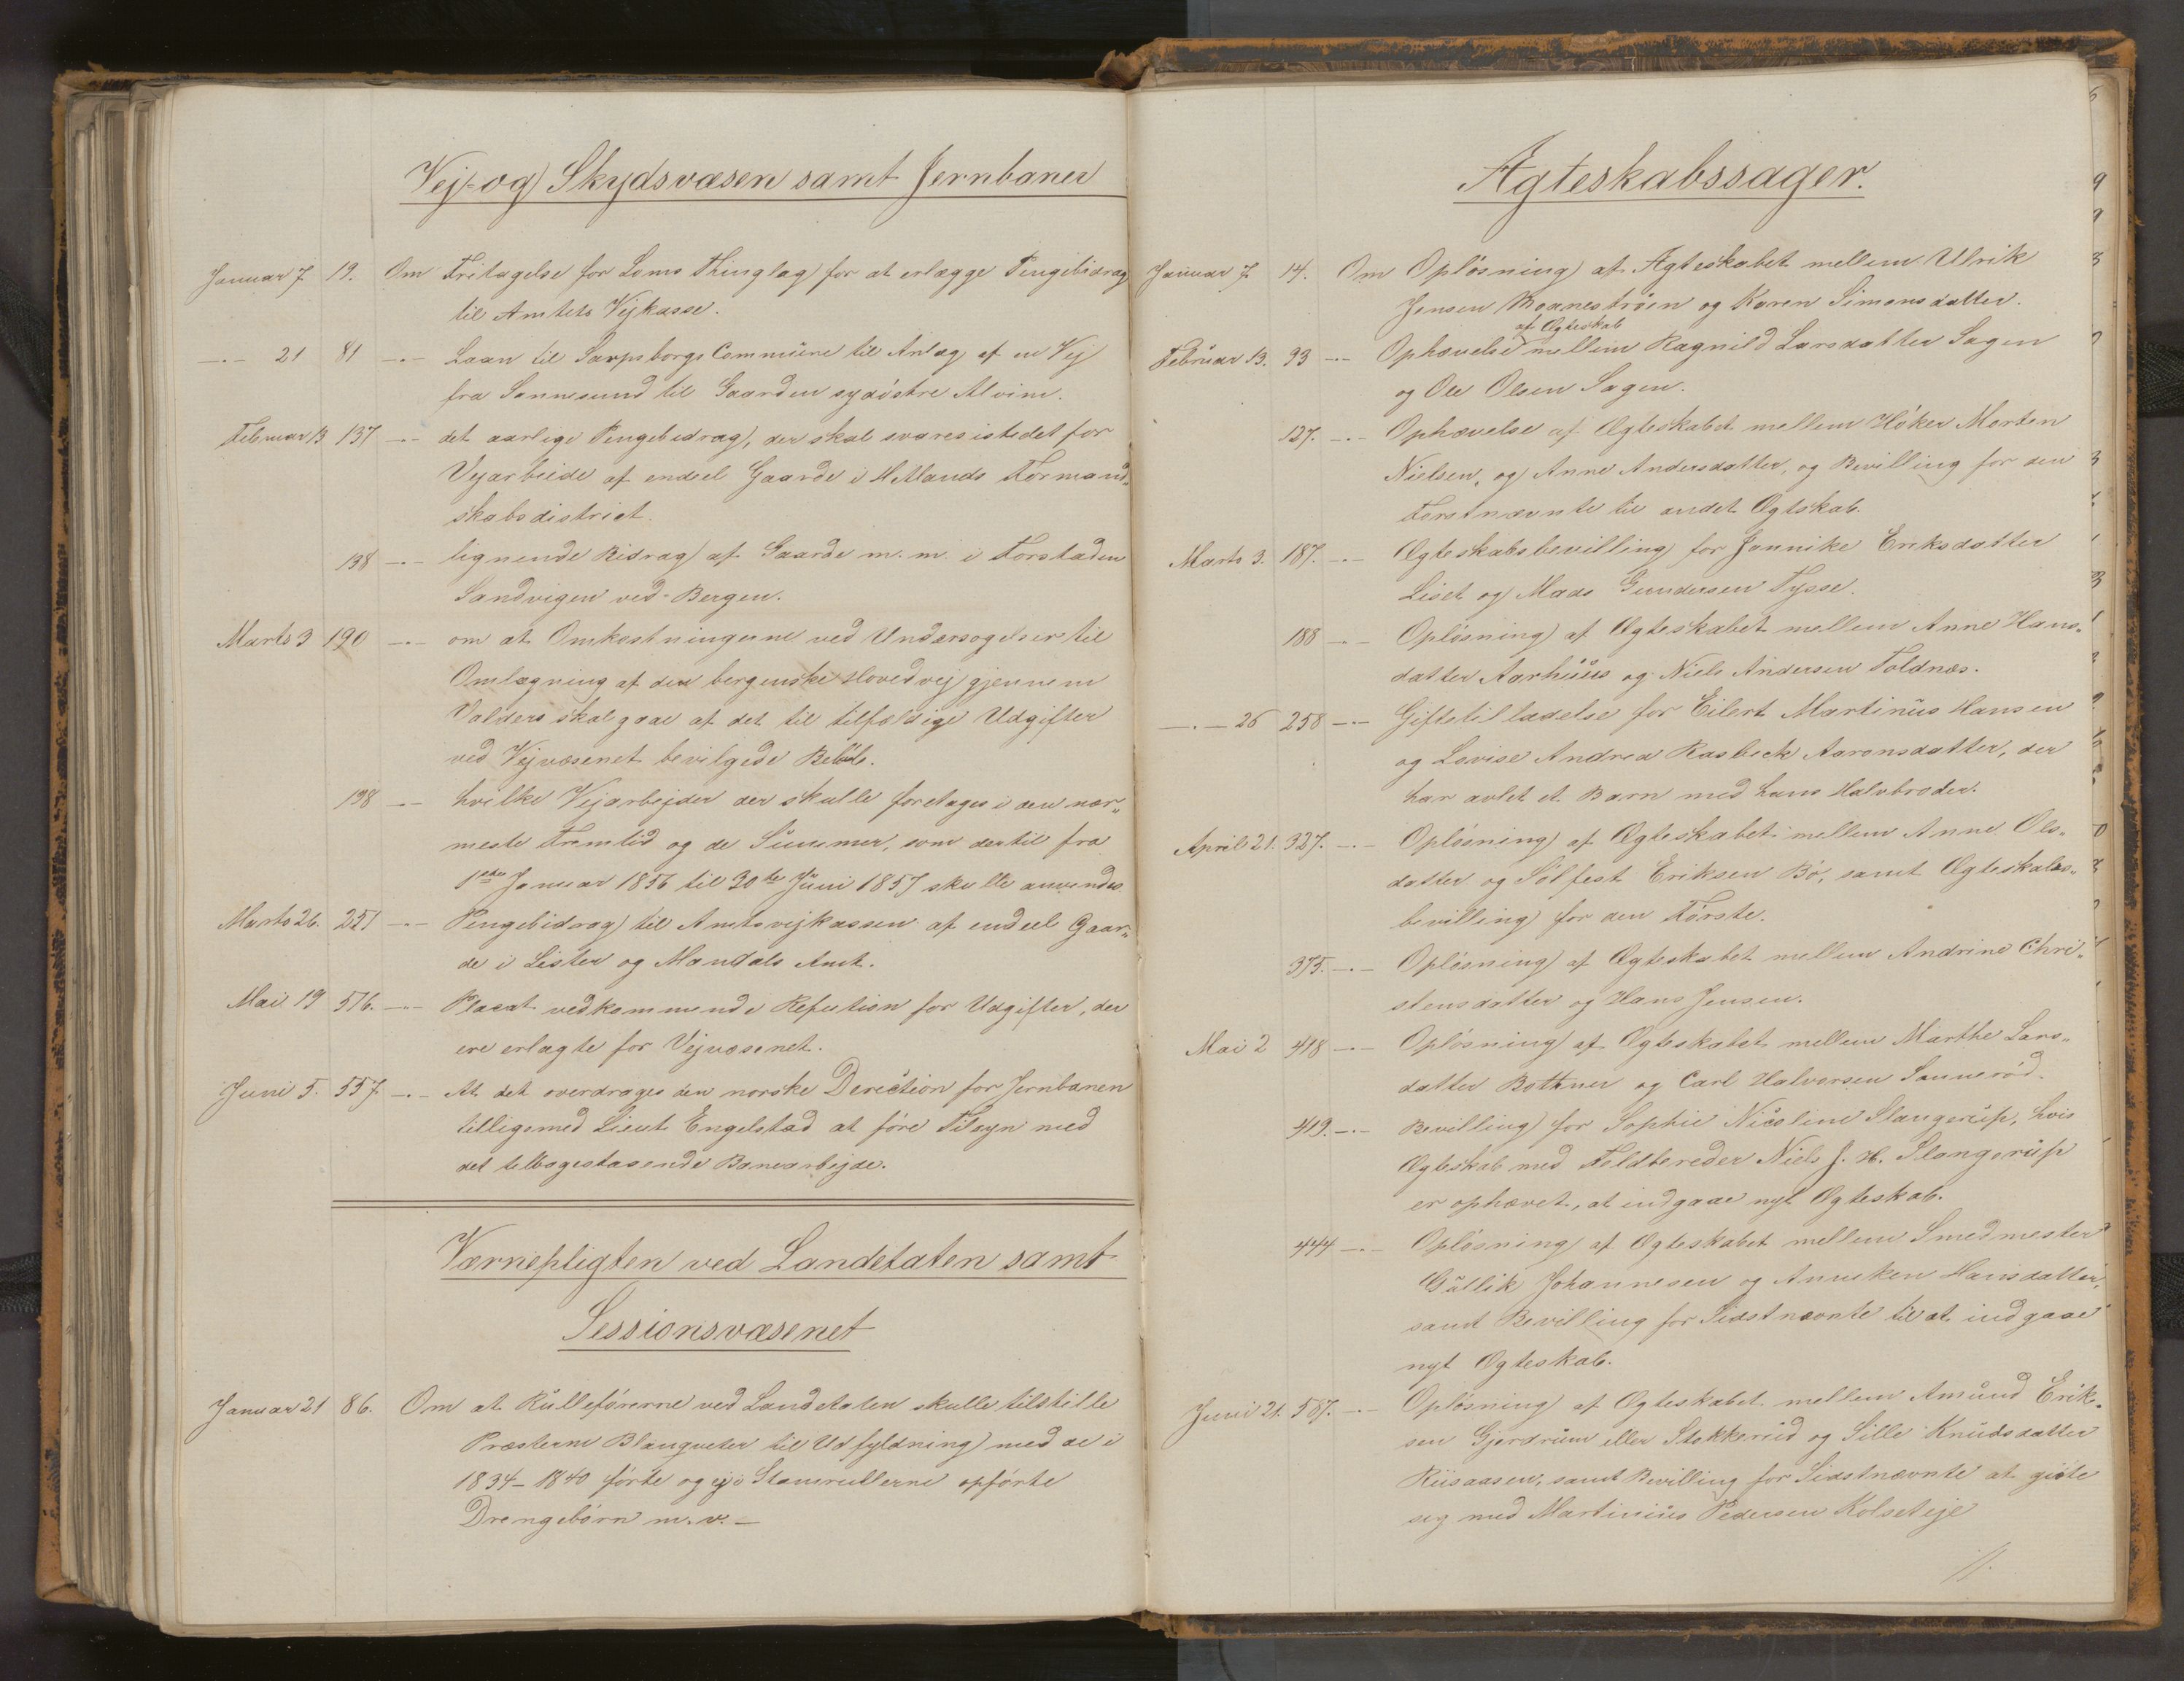 Vej- og Skydsvæsen samt Jernbaner
Januar 7 19. Om Fritagelse for Loms Thinglag for at erlægge Pengebidrag
til Amtets Vejkasse.
—·— 21 81 —·— Laan til Sarpsborgs Commune til Anlæg af en Vej
fra Sannesund til Gaarden sydöstre Alvim.
Februar 13 137 —·— det aarlige Pengebidrag, der skal svares istedet for
Vejarbeide af endeel Gaarde i Hetlands Formand„
skabsdistrict.
138 —·— lignende Bidrag af Gaarde m. m. i Forstaden
Sandvigen ved Bergen.
Marts 3 190 —·— om at Omkostningerne ved Undersøgelser til
Omlægning af den bergenske Hovedvej gjennem
Valders skal gaae af det til tilfældige Udgifter
ved Vejvæsenet bevilgede Belöb.
198 —·— hvilke Vejarbejder der skulle foretages i den nær„
meste Fremtid og de Summer, som dertil fra
1ste Januar 1856 til 30te Juni 1857 skulle anvendes.
Marts 26. 251 —·— Pengebidrag til Amtsvejkassen af endeel Gaar„
de i Lister og Mandals Amt.
Mai 19 516. —·— Placat vedkommende Refusion for Udgifter, der
ere erlagte for Vejvæsenet.
Juni 5. 557 —·— At det overdrages den norske Direction for Jernbanen
tilligemed Lieut Engelstad at före Tilsyn med
det tilbagestaaende Banearbejde.
Værnepligten ved Landetaten samt
Sessionsvæsenet
Januar 21 86. Om at Rulleförerne ved Landetaten skulle tilstille
Præsterne Blanqueter til Udfyldning med de i
1834–1840 förte og ej i Stamrullerne opförte
Drengebörn m. v. —
Ægteskabssager.
Januar 7 14. Om Oplösning af Ægteskabet mellem Ulrik
Jensen og Karen Simonsdatter.
af Ægteskab
Februar 13. 93 —·— Ophævelse mellem Ragnild Larsdatter Sagen
og Ole Olsen Sagen.
127. —·— Ophævelse af Ægteskabet mellem Höker Morten
Nielsen, og Anne Andersdatter, og Bevilling for den
Förstnævnte til andet Ægtskab.
Marts 3. 187. —·— Ægteskabsbevilling for Jannike Eriksdatter
Liset og Mads Gundersen Tysse.
188 —·— Oplösning af Ægteskabet mellem Anne Hans„
datter Aarhuus og Niels Andersen Foldnæs.
—·— 26 258 —·— Giftetilladelse for Eilert Martinus Hansen
og Lovise Andrea Rasbeck Aaronsdatter, der
har avlet et Barn med hans Halvbroder.
April 21. 327. —·— Oplösning af Ægteskabet mellem Anne Ols„
datter og Sölfest Eriksen Bö, samt Ægteskabs„
bevilling for den Förste.
375. —·— Oplösning af Ægteskabet mellem Andrine Chri„
stensdatter og Hans Jensen.
Mai 2 418 —·— Oplösning af Ægteskabet mellem Marthe Lars„
datter Bothner og Carl Halvorsen Sanneröd.
419. —·— Bevilling for Sophie Nicoline Slangerup, hvis
Ægteskab med Feldbereder Niels J. H. Slangerup
er ophævet, at indgaae nyt Ægteskab.
444 —·— Oplösning af Ægteskabet mellem Smedmester
Gullik Johannesen og Anneken Hansdatter,
samt Bevilling for Sidstnævnte til at indgaae
nyt Ægteskab.
Juni 21. 587. —·— Oplösning af Ægteskabet mellem Amund Erik„
sen Gjerdrum eller Stokkerud og Sille Knudsdatter
Riisaasen, samt Bevilling for Sidstnævnte at gifte
sig med Martinius Pedersen Kolseteje